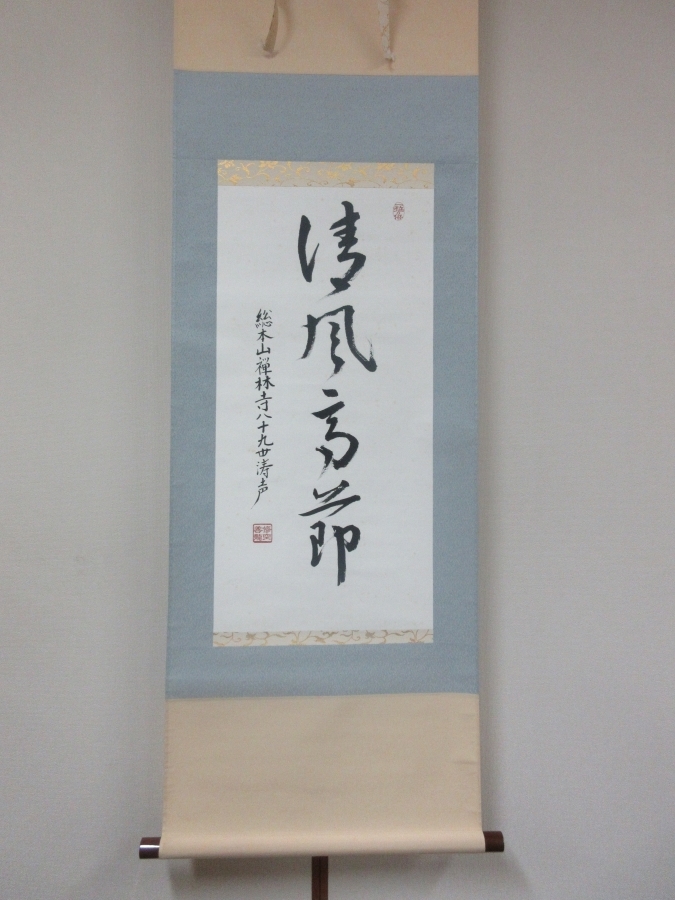 清風高節
総本山禅林寺八十九世涛声